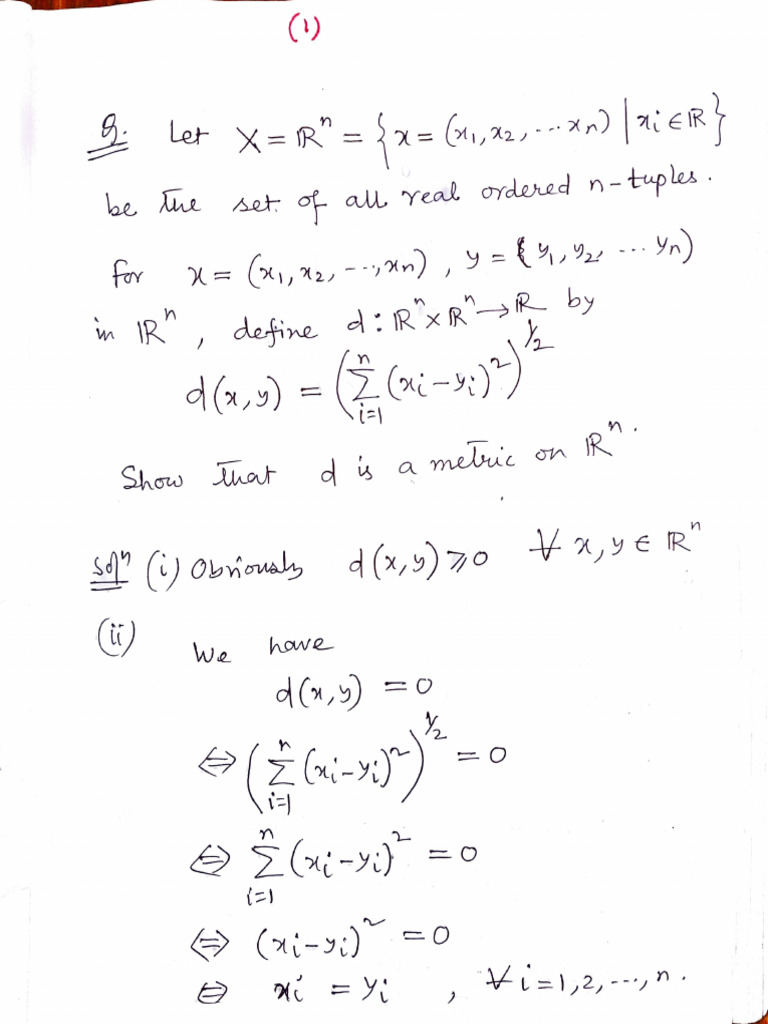 (1)
Q. Let X = ℝⁿ = {x = (x₁, x₂, ... xₙ) | xᵢ ∈ ℝ}
be the set of all real ordered n-tuples.
for x = (x₁, x₂, ..., xₙ), y = (y₁, y₂, ... yₙ)
in ℝⁿ, define d : ℝⁿ × ℝⁿ → ℝ by
d(x, y) = (∑ᵢ₌₁ⁿ (xᵢ - yᵢ)²)^{1/2}
Show that d is a metric on ℝⁿ.
Solⁿ (i) Obviously d(x, y) ⩾ 0 ∀ x, y ∈ ℝⁿ
(ii) We have
d(x, y) = 0
⇔ (∑ᵢ₌₁ⁿ (xᵢ - yᵢ)²)^{1/2} = 0
⇔ ∑ᵢ₌₁ⁿ (xᵢ - yᵢ)² = 0
⇔ (xᵢ - yᵢ)² = 0
⇔ xᵢ = yᵢ , ∀ i = 1, 2, ..., n.